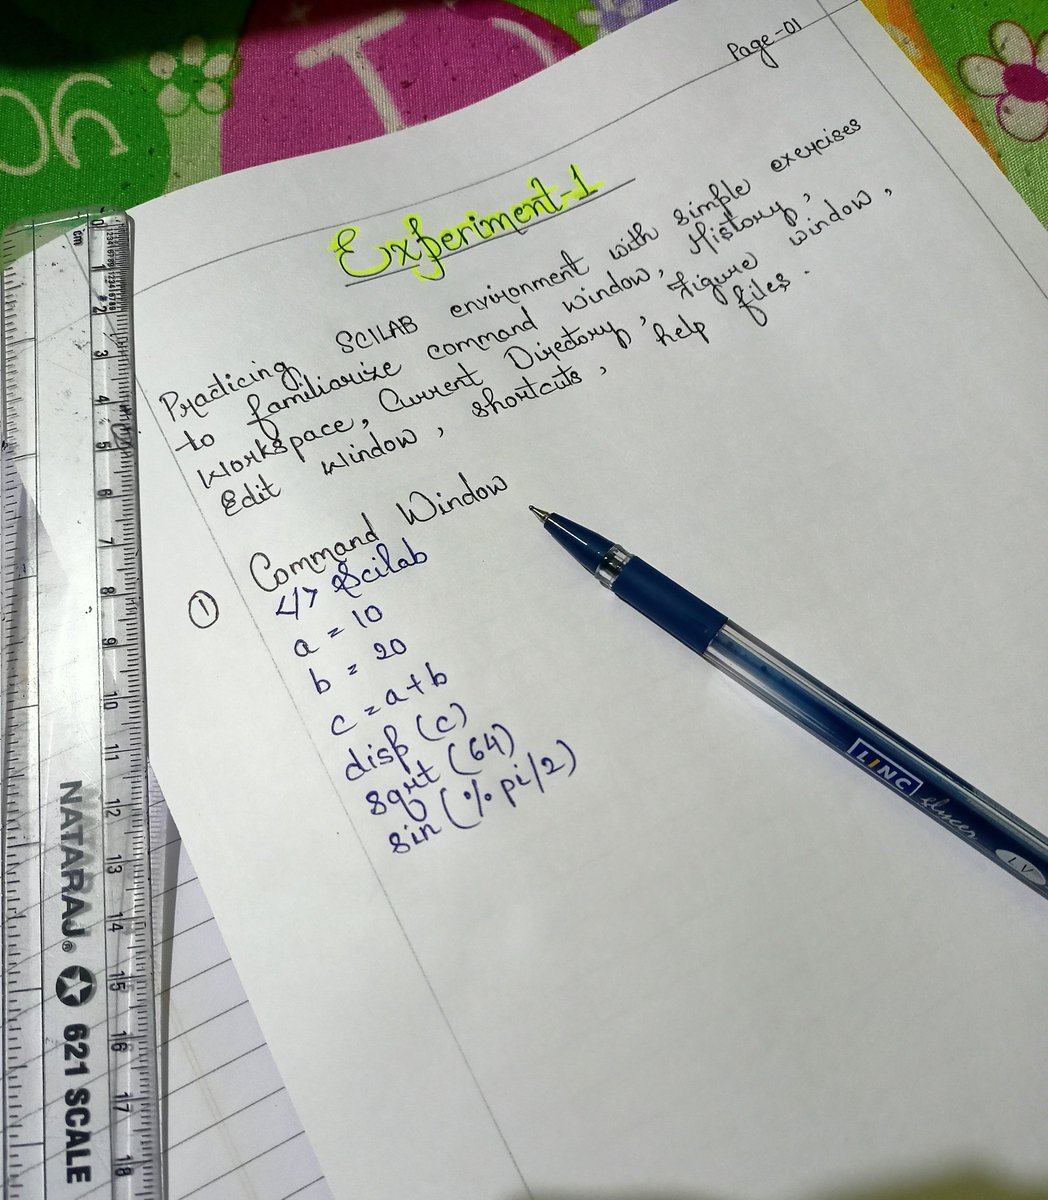 Page-01
Experiment-1
Practicing SCILAB environment with simple exercises
to familiarize command window, History,
Workspace, Current Directory, figure window,
Edit window, shortcuts, help files.
① Command Window
</> Scilab
a = 10
b = 20
c = a+b
disp (c)
sqrt (64)
sin (%pi/2)
LINC glycer
I.V
cm
0 1 2 3 4 5 6 7 8 9 10 11 12 13 14 15 16 17 18
NATARAJ® 621 SCALE